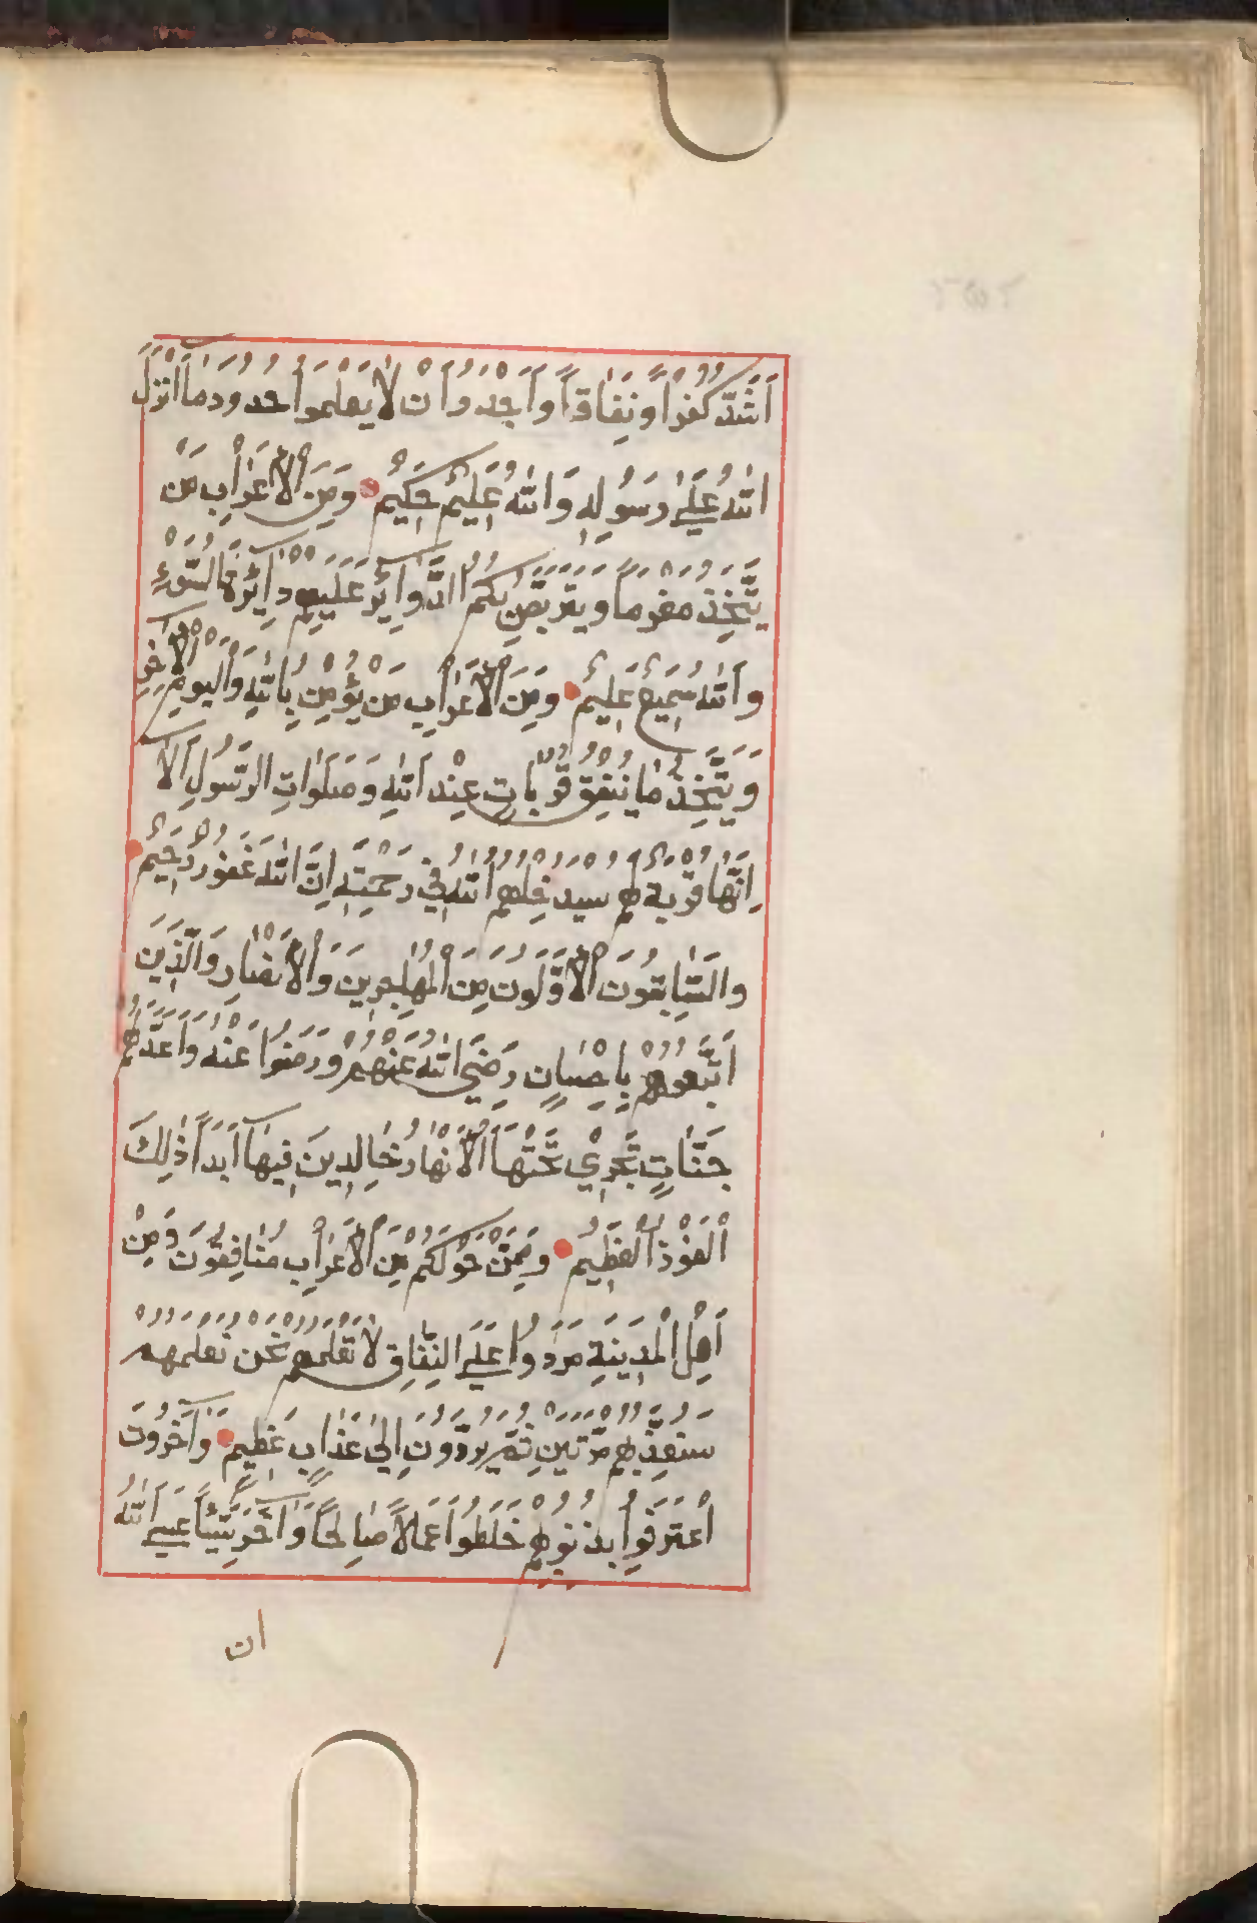 أَشَدُّ كُفْراً وَنِفَاقاً وَأَجْدَرُ أَنْ لَا يَعْلَمُوا حُدُودَ مَا أَنْزَلَ
اللهُ عَلَىٰ رَسُولِهِ وَاللهُ عَلِيمٌ حَكِيمٌ وَمِنَ الْأَعْرَابِ مَنْ
يَتَّخِذُ مَغْرَماً وَيَتَرَبَّصُ بِكُمُ الدَّوَائِرَ عَلَيْهِمْ دَائِرَةُ السَّوْءِ
وَاللهُ سَمِيعٌ عَلِيمٌ وَمِنَ الْأَعْرَابِ مَنْ يُؤْمِنُ بِاللهِ وَالْيَوْمِ الْآخِرِ
وَيَتَّخِذُ مَا يُنْفِقُ قُرُبَاتٍ عِنْدَ اللهِ وَصَلَوَاتِ الرَّسُولِ أَلَا
إِنَّهَا قُرْبَةٌ لَهُمْ سَيُدْخِلُهُمُ اللهُ فِي رَحْمَتِهِ إِنَّ اللهَ غَفُورٌ رَحِيمٌ
وَالسَّابِقُونَ الْأَوَّلُونَ مِنَ الْمُهَاجِرِينَ وَالْأَنْصَارِ وَالَّذِينَ
اتَّبَعُوهُمْ بِإِحْسَانٍ رَضِيَ اللهُ عَنْهُمْ وَرَضُوا عَنْهُ وَأَعَدَّ لَهُمْ
جَنَّاتٍ تَجْرِي تَحْتَهَا الْأَنْهَارُ خَالِدِينَ فِيهَا أَبَداً ذَٰلِكَ
الْفَوْزُ الْعَظِيمُ وَمِمَّنْ حَوْلَكُمْ مِنَ الْأَعْرَابِ مُنَافِقُونَ وَمِنْ
أَهْلِ الْمَدِينَةِ مَرَدُوا عَلَى النِّفَاقِ لَا تَعْلَمُهُمْ نَحْنُ نَعْلَمُهُمْ
سَنُعَذِّبُهُمْ مَرَّتَيْنِ ثُمَّ يُرَدُّونَ إِلَىٰ عَذَابٍ عَظِيمٍ وَآخَرُونَ
اعْتَرَفُوا بِذُنُوبِهِمْ خَلَطُوا عَمَلًا صَالِحاً وَآخَرَ سَيِّئاً عَسَى اللهُ
ان